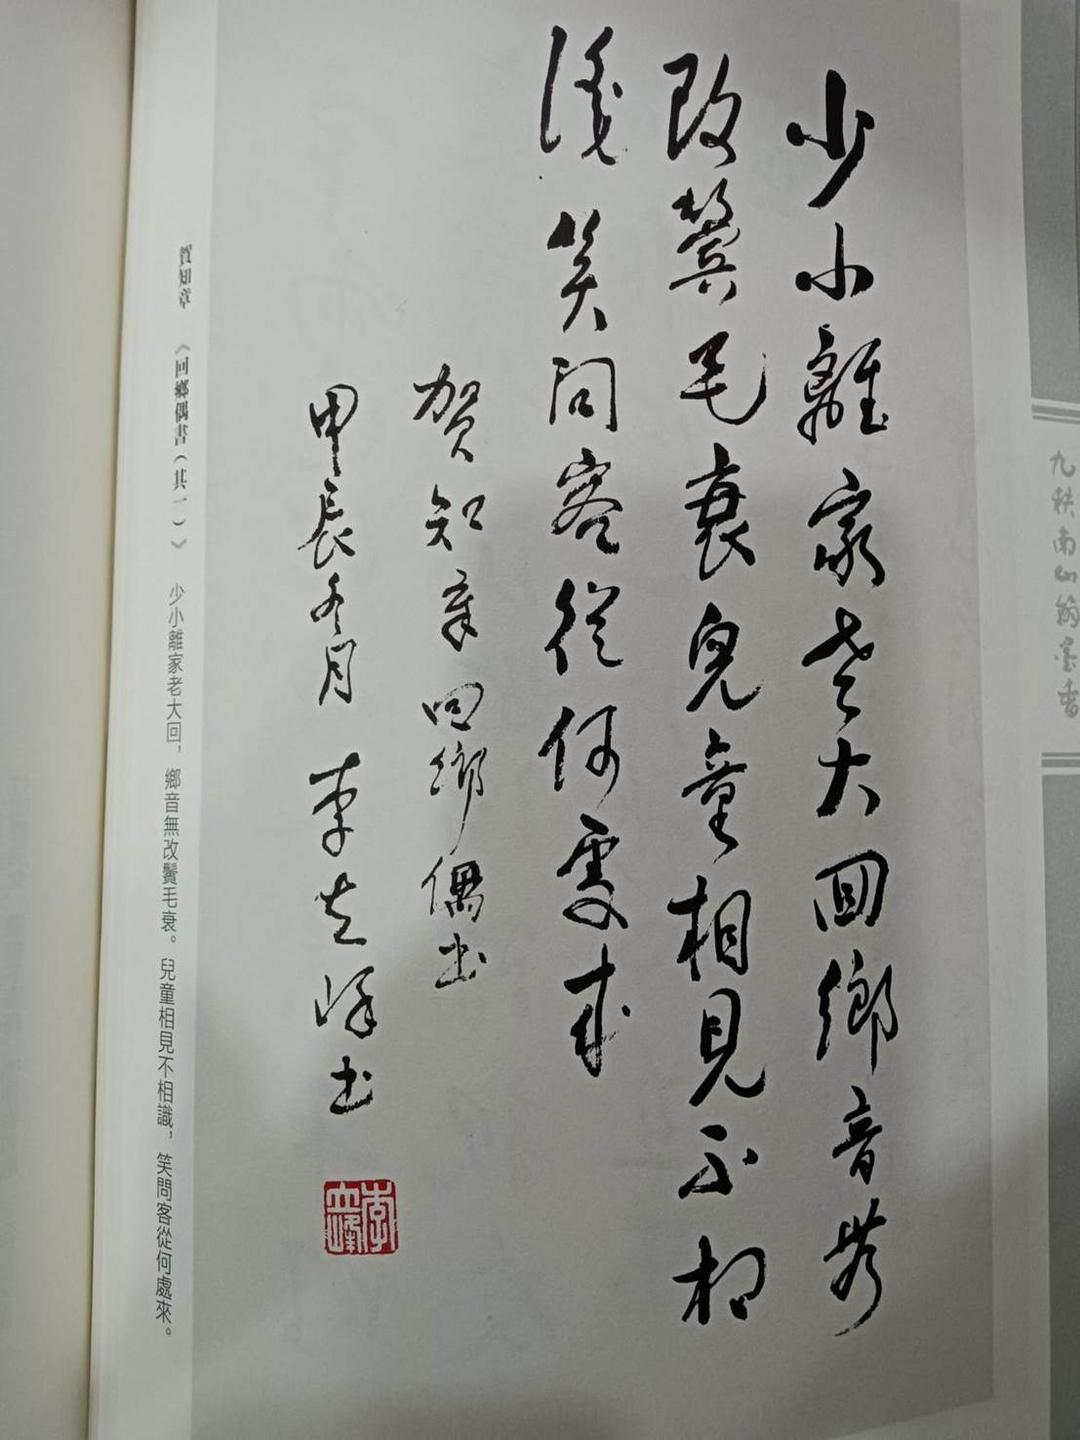 少小離家老大回鄉音無
改鬢毛衰兒童相見不相
識笑問客從何處來
賀知章回鄉偶書
甲辰冬月 李立峰書
李立峰
賀知章 《回鄉偶書(其一)》 少小離家老大回，鄉音無改鬢毛衰。兒童相見不相識，笑問客從何處來。
九秩南山翰墨香